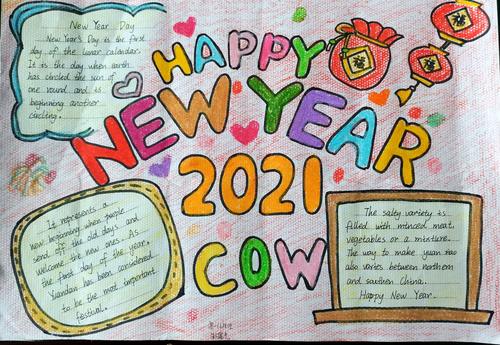 New Year Day
New Year's Day is the first
day of the lunar calendar.
It is the day when earth
has circled the sun of
one round and is
beginning another
circling.
HAPPY
NEW YEAR
2021
COW
It represents a
new beginning when people
send off the old days and
welcome the new ones. As
the first day of the year,
Yuandan has been considered
to be the most important
festival.
The salty variety is
filled with minced meat,
vegetables or a mixture.
The way to make yuan xiao
also varies between northern
and southern China.
Happy New Year.